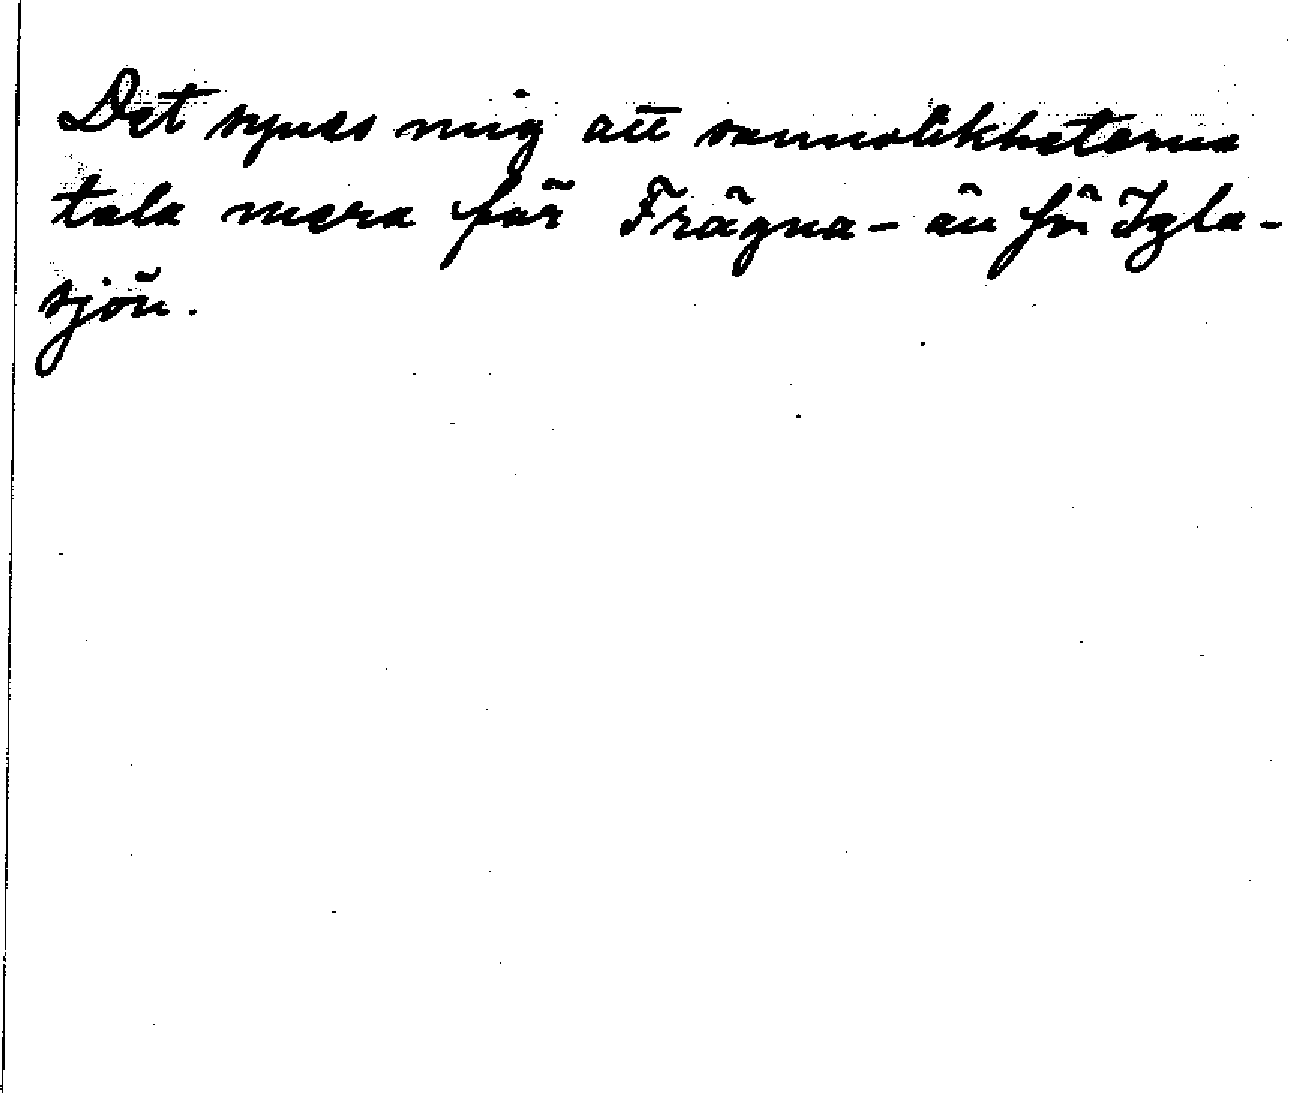 Det synes mig att sannolikheterna
tala mera för Frägna- än för Igla-
sjön.